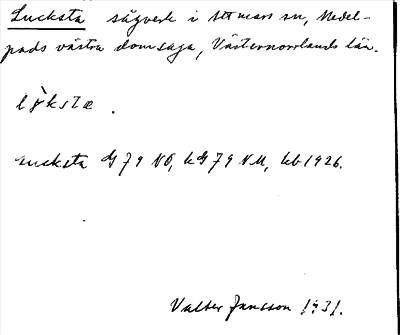 Lucksta sågverk i Attmars sn, Medel-
pads västra domsaga, Västernorrlands län.
Lucksta G 79 NÖ, kG 79 NV, kb 1926.
Valter Jansson 1931.